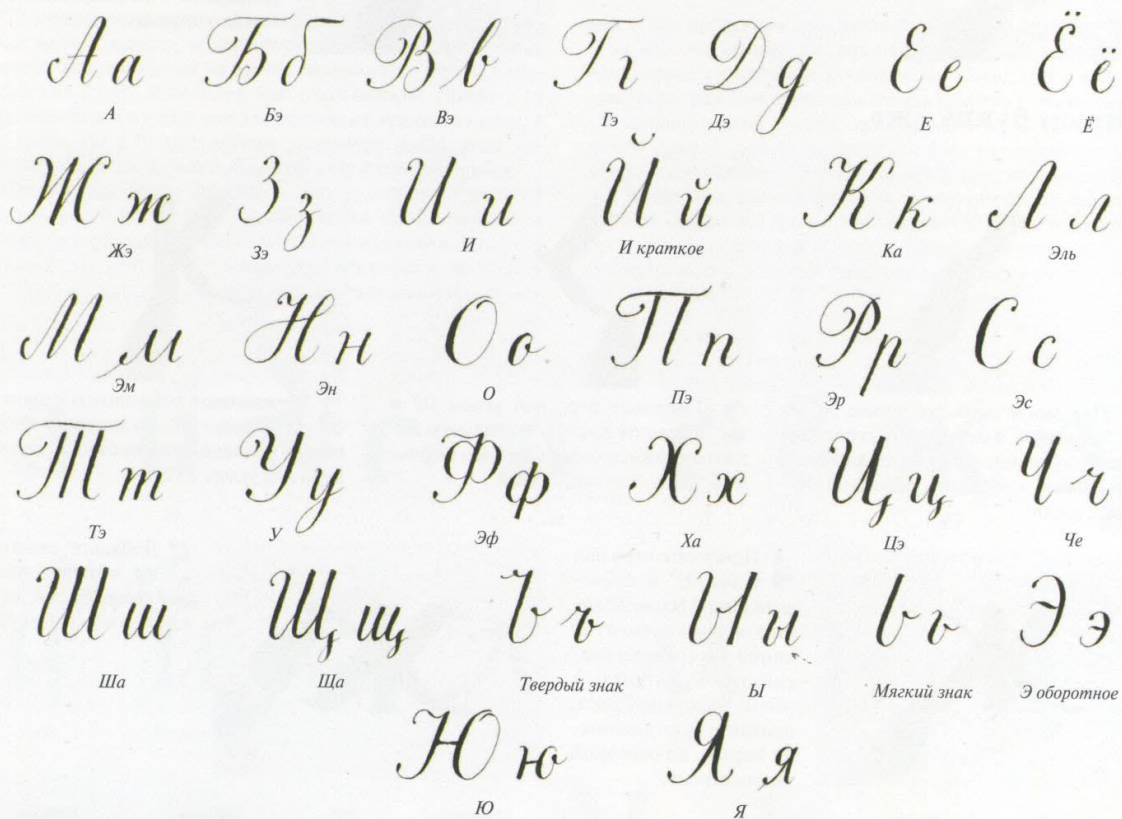 Аа Бб Вв Гг Дд Ее Ёё
А Бэ Вэ Гэ Дэ Е Ё
Жж Зз Ии Йй Кк Лл
Жэ Зэ И И краткое Ка Эль
Мм Нн Оо Пп Рр Сс
Эм Эн О Пэ Эр Эс
Тт Уу Фф Хх Цц Чч
Тэ У Эф Ха Цэ Че
Шш Щщ Ъъ Ыы Ьь Ээ
Ша Ща Твердый знак Ы Мягкий знак Э оборотное
Юю Яя
Ю Я